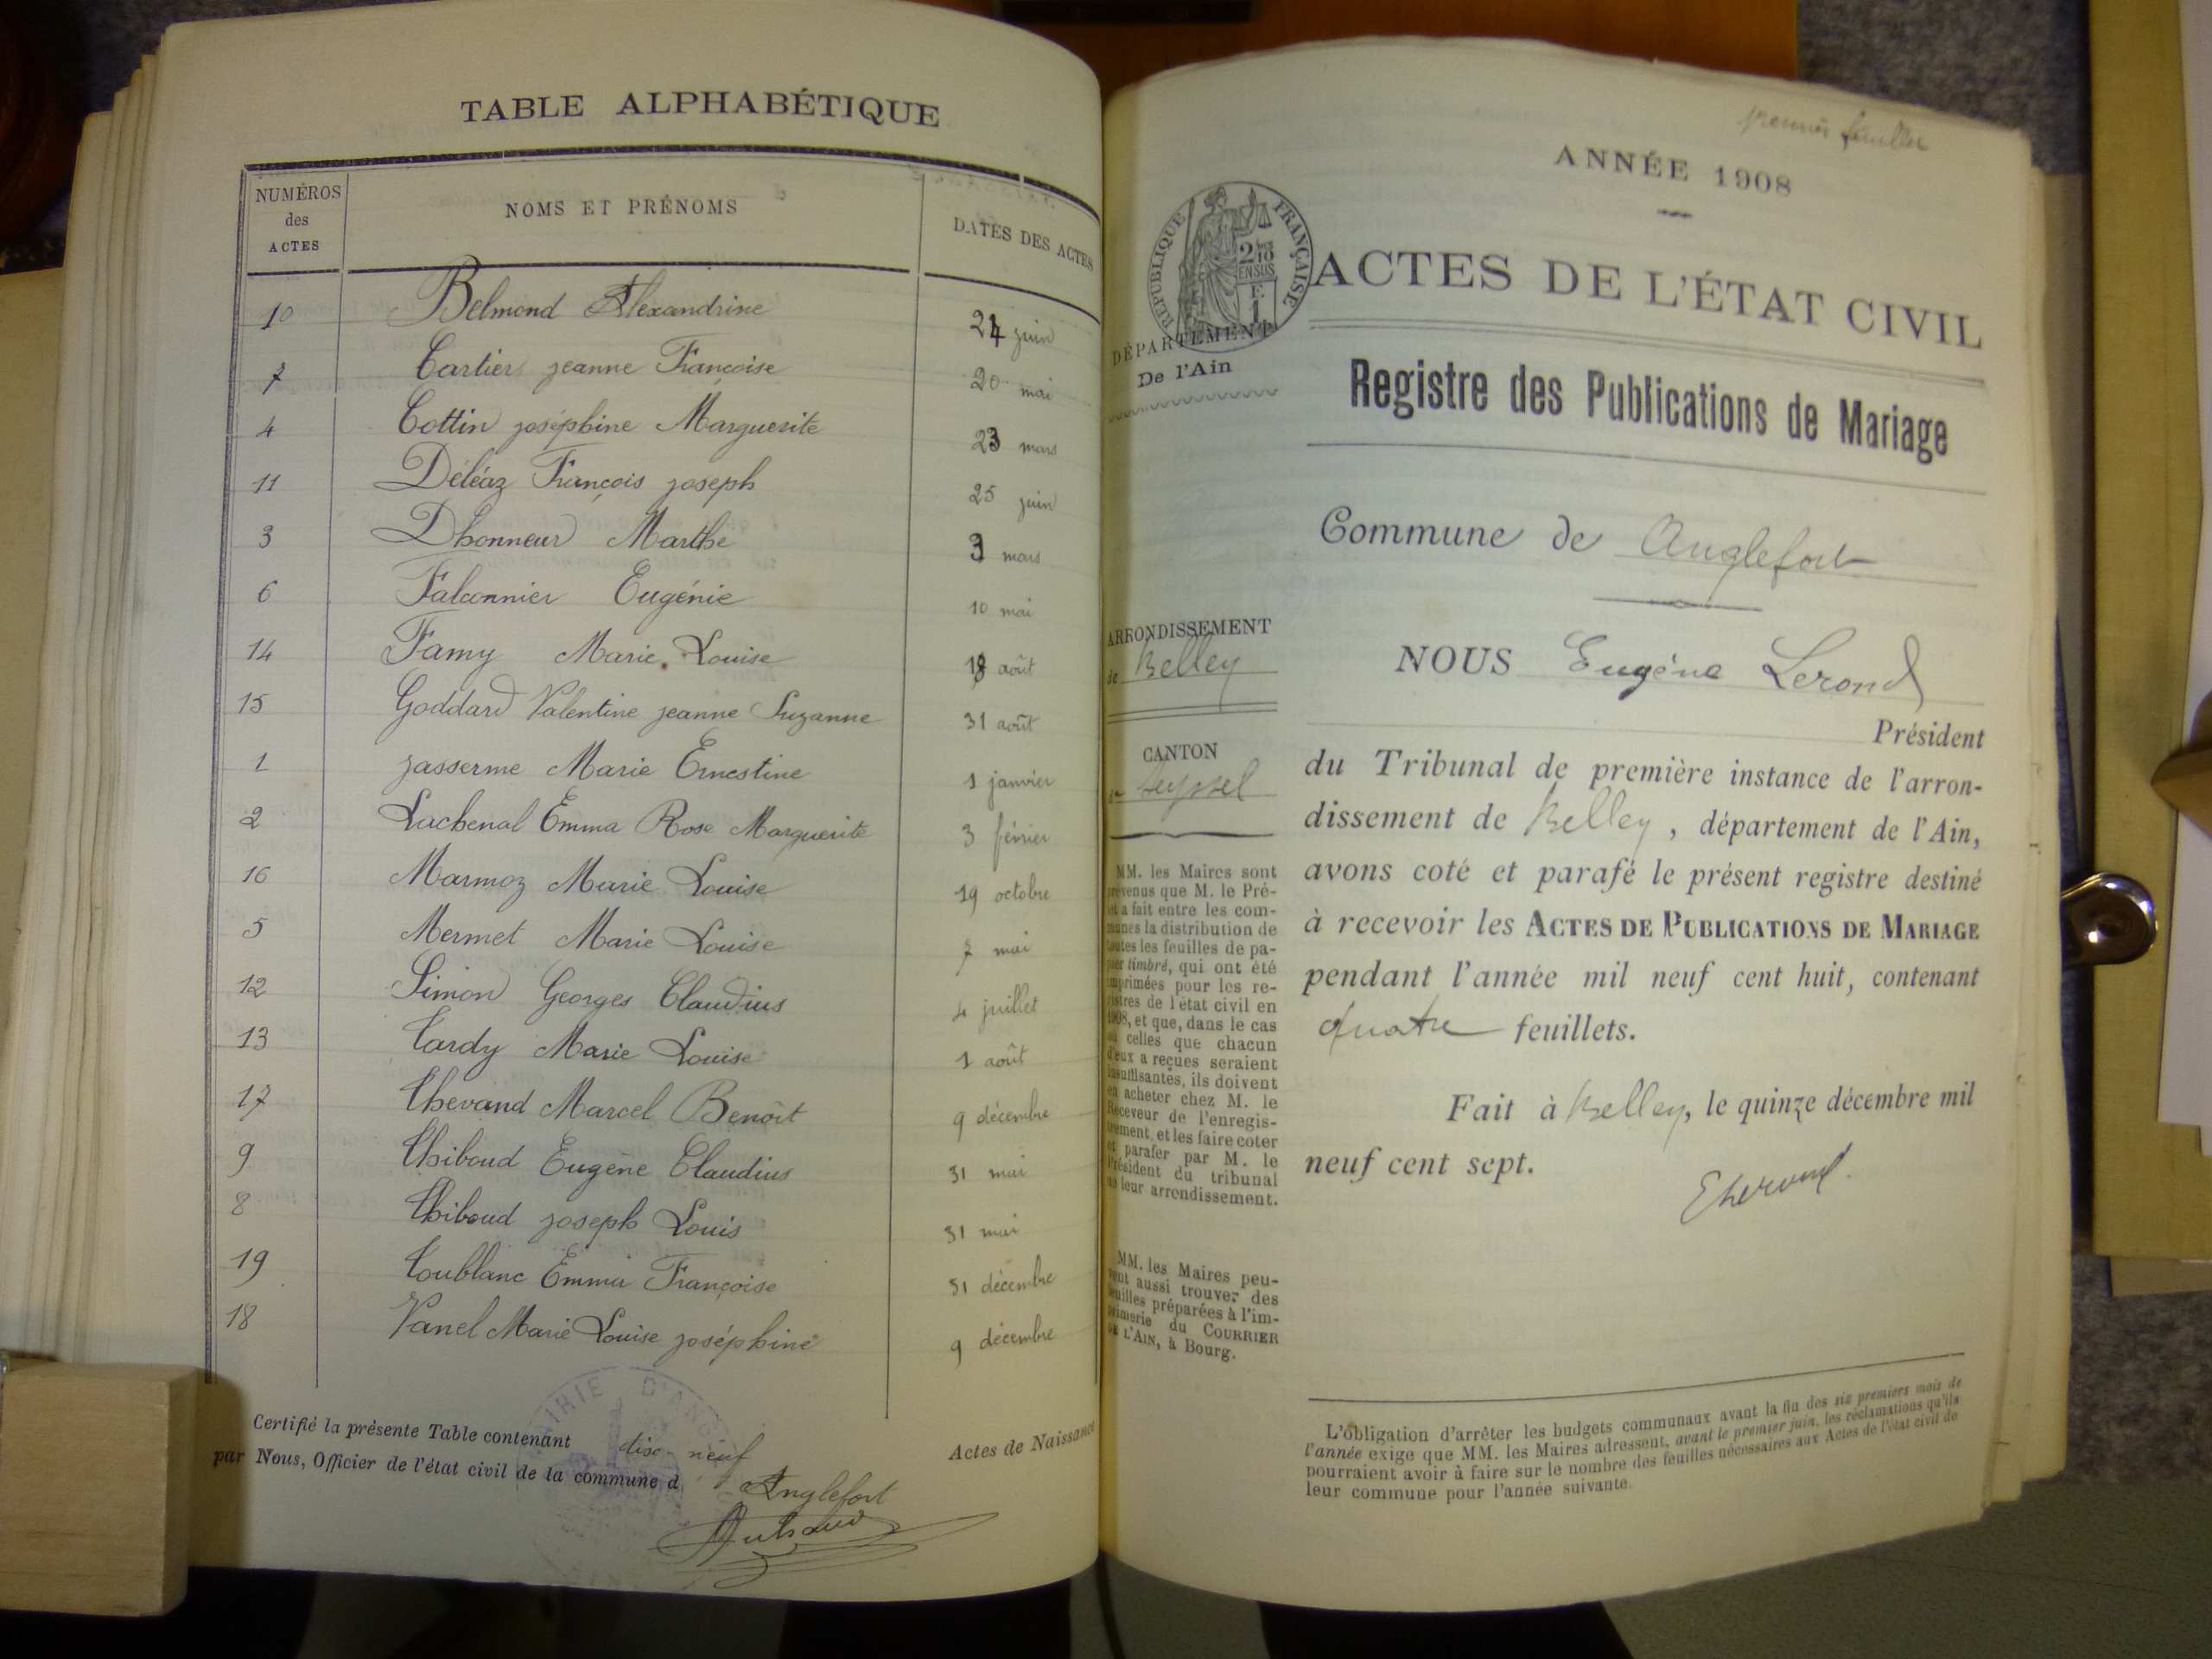 TABLE ALPHABÉTIQUE
NUMÉROS des ACTES
NOMS ET PRÉNOMS
DATES DES ACTES
10 Belmond Alexandrine 24 juin
7 Cartier jeanne Françoise 20 mai
4 Cottin joséphine Marguerite 23 mars
11 Déléaz François joseph 25 juin
3 Dhonneur Marthe 3 mars
6 Falconnier Eugénie 10 mai
14 Famy Marie Louise 18 août
15 Goddard Valentine jeanne Suzanne 31 août
1 jasserme Marie Ernestine 1 janvier
2 Lachenal Emma Rose Marguerite 3 février
16 Marmoz Marie Louise 19 octobre
5 Mermet Marie Louise 7 mai
12 Simon Georges Claudius 4 juillet
13 Tardy Marie Louise 1 août
17 Thevand Marcel Benoît 9 décembre
9 Thiboud Eugène Claudius 31 mai
8 Thiboud joseph Louis 31 mai
19 Toublanc Emma Françoise 31 décembre
18 Vanel Marie Louise joséphine 9 décembre
Certifié la présente Table contenant dix-neuf Actes de Naissance
par Nous, Officier de l'état civil de la commune d Anglefort
MAIRIE D'ANG
premier feuillet
ANNÉE 1908
RÉPUBLIQUE FRANÇAISE
2/10 EN SUS
E
1
ACTES DE L'ÉTAT CIVIL
DÉPARTEMENT
De l'Ain
Registre des Publications de Mariage
Commune de Anglefort
ARRONDISSEMENT
de Belley
CANTON
de Seyssel
NOUS Eugène Lerond
Président
du Tribunal de première instance de l'arron-
dissement de Belley, département de l'Ain,
avons coté et parafé le présent registre destiné
à recevoir les ACTES DE PUBLICATIONS DE MARIAGE
pendant l'année mil neuf cent huit, contenant
quatre feuillets.
Fait à Belley, le quinze décembre mil
neuf cent sept.
MM. les Maires sont
prévenus que M. le Pré-
fet a fait entre les com-
munes la distribution de
toutes les feuilles de pa-
pier timbré, qui ont été
imprimées pour les re-
gistres de l'état civil en
1908, et que, dans le cas
où celles que chacun
d'eux a reçues seraient
insuffisantes, ils doivent
en acheter chez M. le
Receveur de l'enregis-
trement, et les faire coter
et parafer par M. le
Président du tribunal
de leur arrondissement.
MM. les Maires peu-
vent aussi trouver des
feuilles préparées à l'im-
primerie du COURRIER
DE L'AIN, à Bourg.
L'obligation d'arrêter les budgets communaux avant la fin des six premiers mois de
l'année exige que MM. les Maires adressent, avant le premier juin, les réclamations qu'ils
pourraient avoir à faire sur le nombre des feuilles nécessaires aux Actes de l'état civil de
leur commune pour l'année suivante.